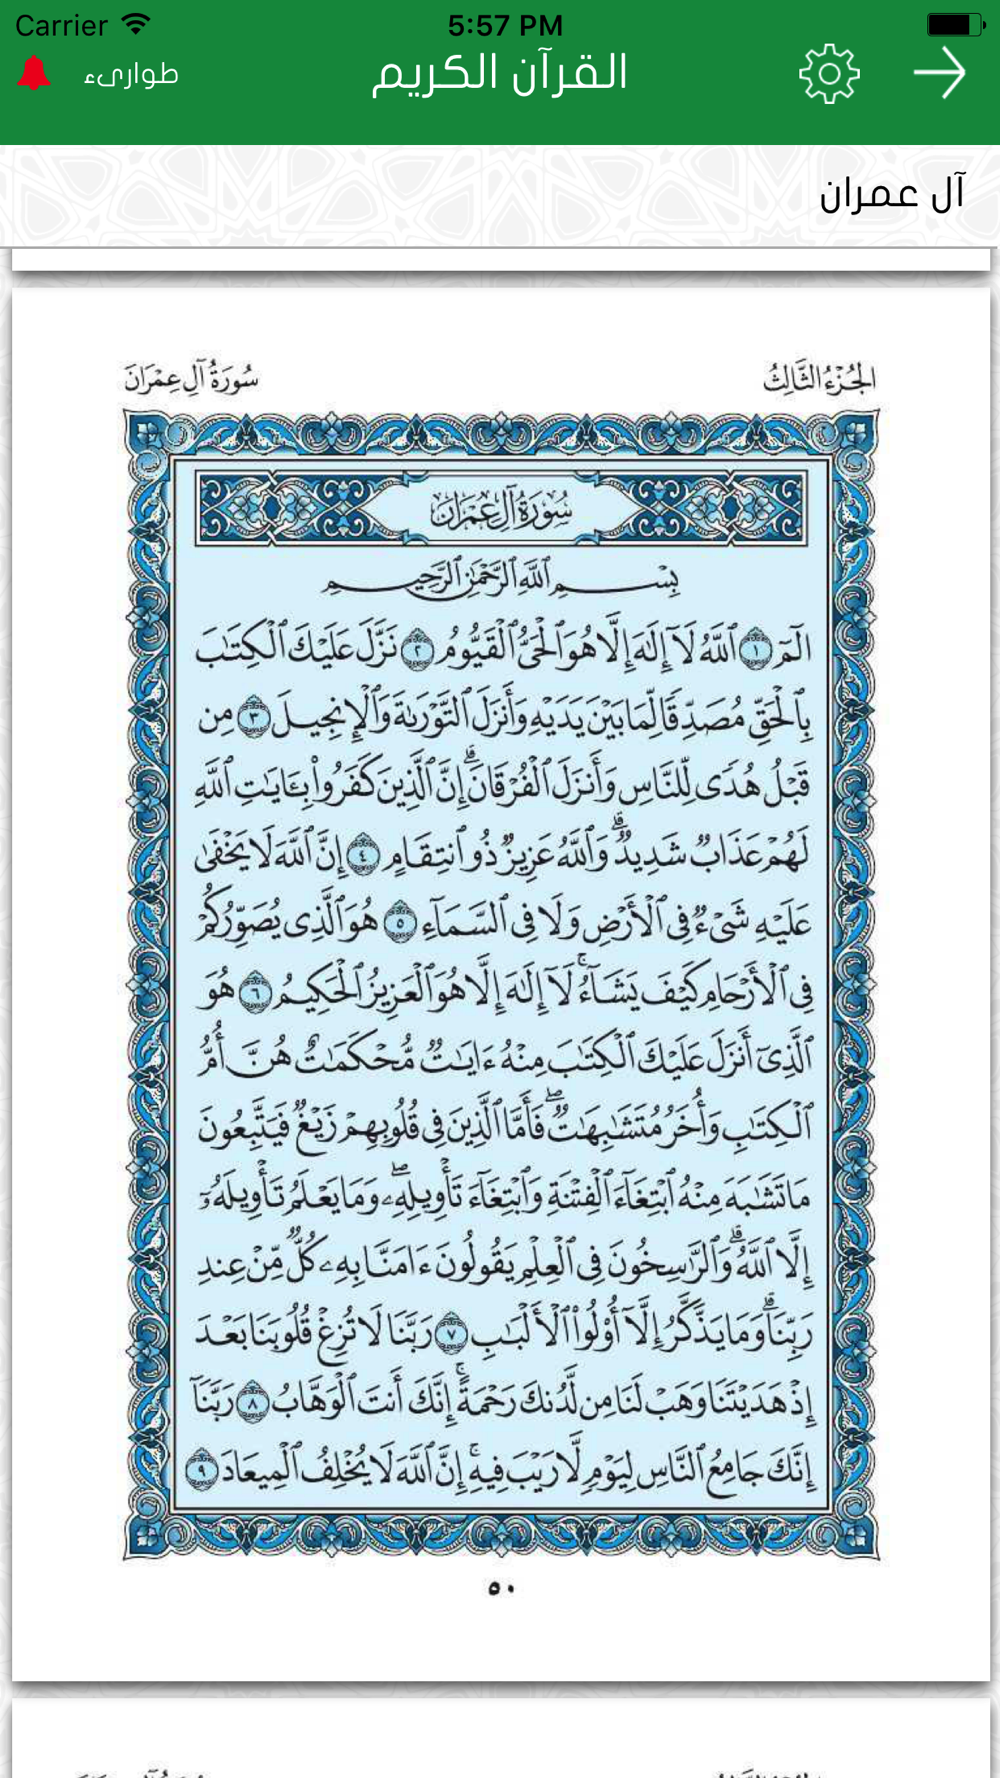 Carrier 5:57 PM
طوارىء القرآن الكريم
آل عمران
الجُزْءُ الثَّالِثُ سُورَةُ آلِ عِمْرَانَ
سُورَةُ آلِ عِمْرَانَ
بِسْمِ ٱللَّهِ ٱلرَّحْمَٰنِ ٱلرَّحِيمِ
الٓمٓ ١ ٱللَّهُ لَآ إِلَٰهَ إِلَّا هُوَ ٱلْحَىُّ ٱلْقَيُّومُ ٢ نَزَّلَ عَلَيْكَ ٱلْكِتَٰبَ
بِٱلْحَقِّ مُصَدِّقًا لِّمَا بَيْنَ يَدَيْهِ وَأَنزَلَ ٱلتَّوْرَىٰةَ وَٱلْإِنجِيلَ ٣ مِن
قَبْلُ هُدًى لِّلنَّاسِ وَأَنزَلَ ٱلْفُرْقَانَ ۗ إِنَّ ٱلَّذِينَ كَفَرُوا۟ بِـَٔايَٰتِ ٱللَّهِ
لَهُمْ عَذَابٌ شَدِيدٌ ۗ وَٱللَّهُ عَزِيزٌ ذُو ٱنتِقَامٍ ٤ إِنَّ ٱللَّهَ لَا يَخْفَىٰ
عَلَيْهِ شَىْءٌ فِى ٱلْأَرْضِ وَلَا فِى ٱلسَّمَآءِ ٥ هُوَ ٱلَّذِى يُصَوِّرُكُمْ
فِى ٱلْأَرْحَامِ كَيْفَ يَشَآءُ ۚ لَآ إِلَٰهَ إِلَّا هُوَ ٱلْعَزِيزُ ٱلْحَكِيمُ ٦ هُوَ
ٱلَّذِىٓ أَنزَلَ عَلَيْكَ ٱلْكِتَٰبَ مِنْهُ ءَايَٰتٌ مُّحْكَمَٰتٌ هُنَّ أُمُّ
ٱلْكِتَٰبِ وَأُخَرُ مُتَشَٰبِهَٰتٌ ۖ فَأَمَّا ٱلَّذِينَ فِى قُلُوبِهِمْ زَيْغٌ فَيَتَّبِعُونَ
مَا تَشَٰبَهَ مِنْهُ ٱبْتِغَآءَ ٱلْفِتْنَةِ وَٱبْتِغَآءَ تَأْوِيلِهِۦ ۖ وَمَا يَعْلَمُ تَأْوِيلَهُۥٓ
إِلَّا ٱللَّهُ ۗ وَٱلرَّٰسِخُونَ فِى ٱلْعِلْمِ يَقُولُونَ ءَامَنَّا بِهِۦ كُلٌّ مِّنْ عِندِ
رَبِّنَا ۗ وَمَا يَذَّكَّرُ إِلَّآ أُو۟لُوا۟ ٱلْأَلْبَٰبِ ٧ رَبَّنَا لَا تُزِغْ قُلُوبَنَا بَعْدَ
إِذْ هَدَيْتَنَا وَهَبْ لَنَا مِن لَّدُنكَ رَحْمَةً ۚ إِنَّكَ أَنتَ ٱلْوَهَّابُ ٨ رَبَّنَآ
إِنَّكَ جَامِعُ ٱلنَّاسِ لِيَوْمٍ لَّا رَيْبَ فِيهِ ۚ إِنَّ ٱللَّهَ لَا يُخْلِفُ ٱلْمِيعَادَ ٩
٥٠